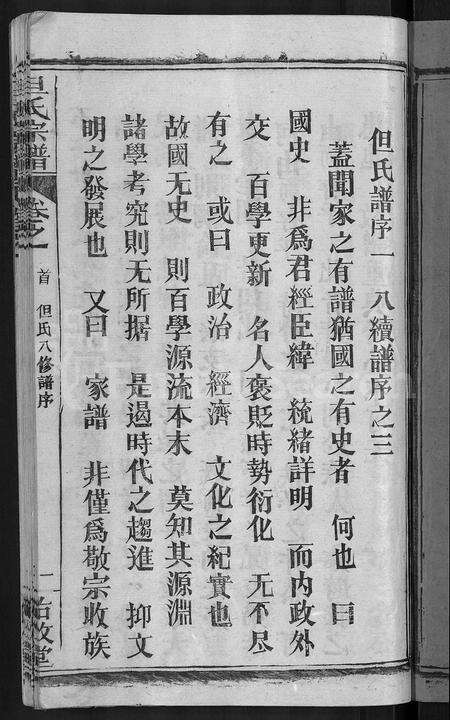 但氏譜序一 八續譜序之三
蓋聞家之有譜猶國之有史者 何也 曰
國史 非爲君經臣緯 統緒詳明 而內政外
交 百學更新 名人褒貶時勢衍化 无不尽
有之 或曰 政治 經濟 文化之紀實也
故國无史 則百學源流本末 莫知其源淵
諸學考究則无所据 是遏時代之趨進 抑文
明之發展也 又曰 家譜 非僅爲敬宗收族
但氏宗譜 卷之一
首 但氏八修譜序
一